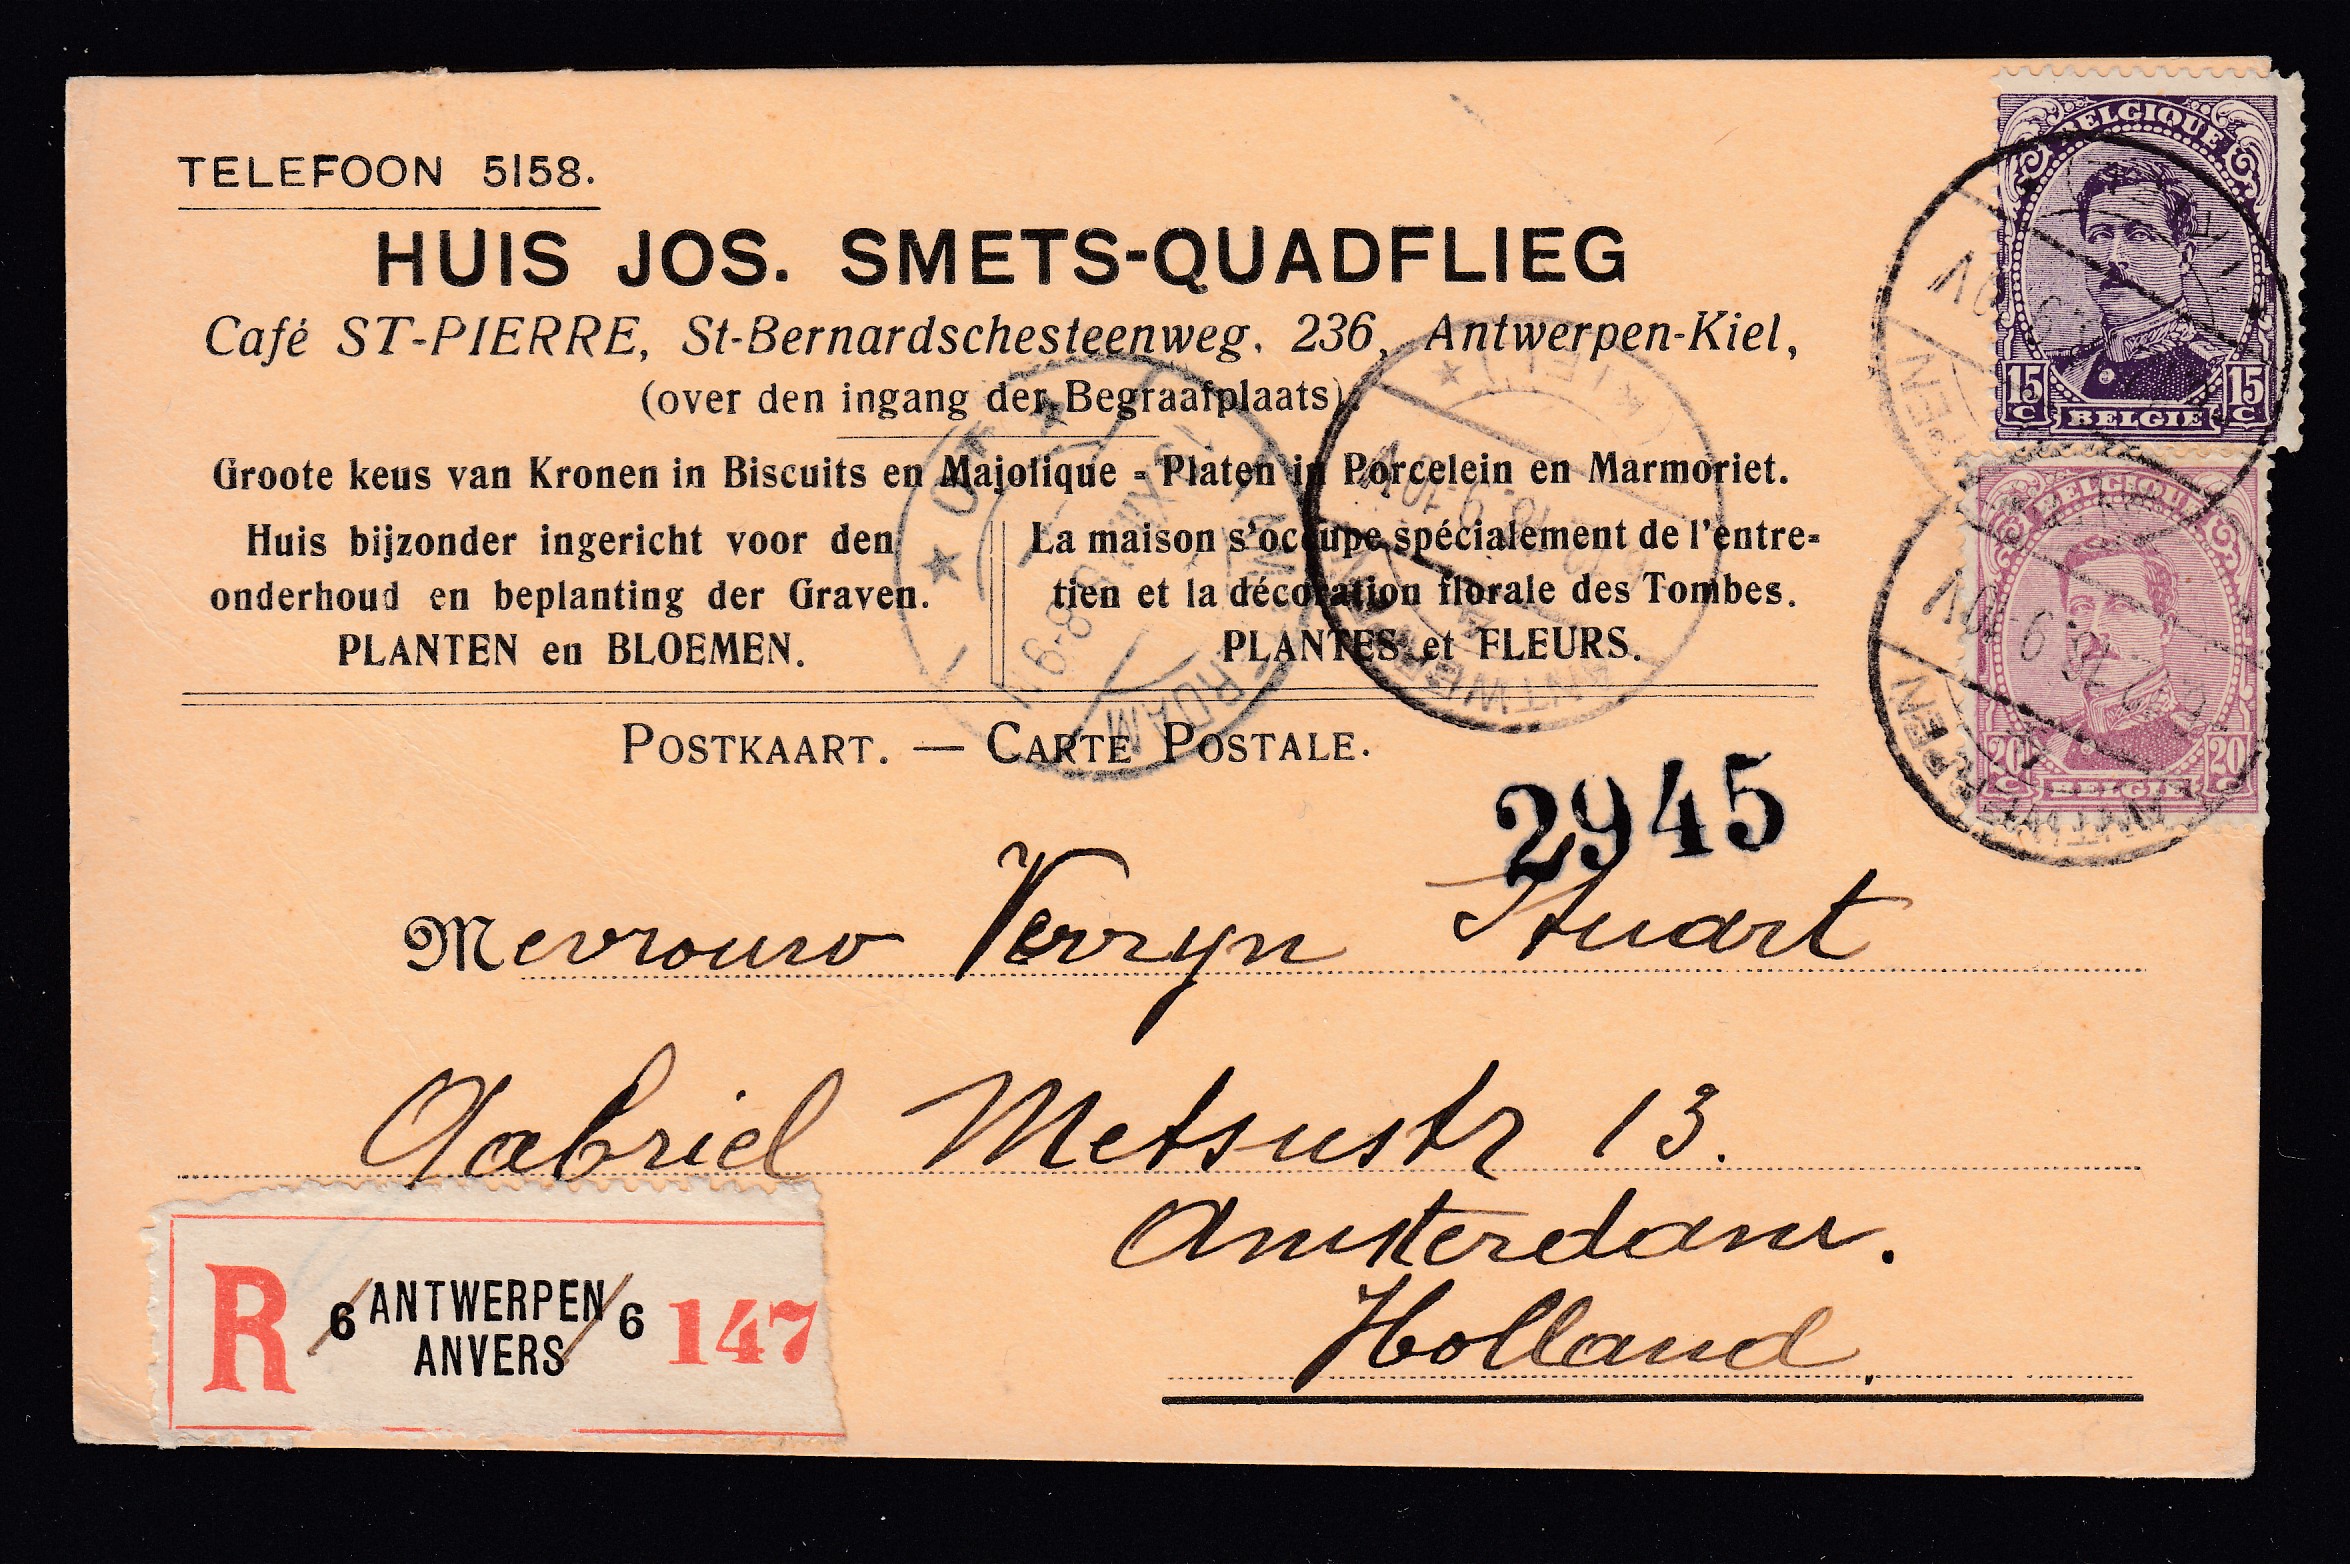 TELEFOON 5158.
HUIS JOS. SMETS-QUADFLIEG
Café ST-PIERRE, St-Bernardschesteenweg, 236, Antwerpen-Kiel,
(over den ingang der Begraafplaats).
Groote keus van Kronen in Biscuits en Majolique - Platen in Porcelein en Marmoriet.
Huis bijzonder ingericht voor den
onderhoud en beplanting der Graven.
PLANTEN en BLOEMEN.
La maison s'occupe spécialement de l'entre-
tien et la décoration florale des Tombes.
PLANTES et FLEURS.
POSTKAART. — CARTE POSTALE.
BELGIQUE
15 C BELGIE 15 C
BELGIQUE
20 C BELGIE 20 C
ANTWERPEN
ANTWERPEN
2945
Mevrouw Verryn Stuart
Gabriel Metsustr 13.
Amsterdam.
Holland
R 6 ANTWERPEN 6 147
ANVERS